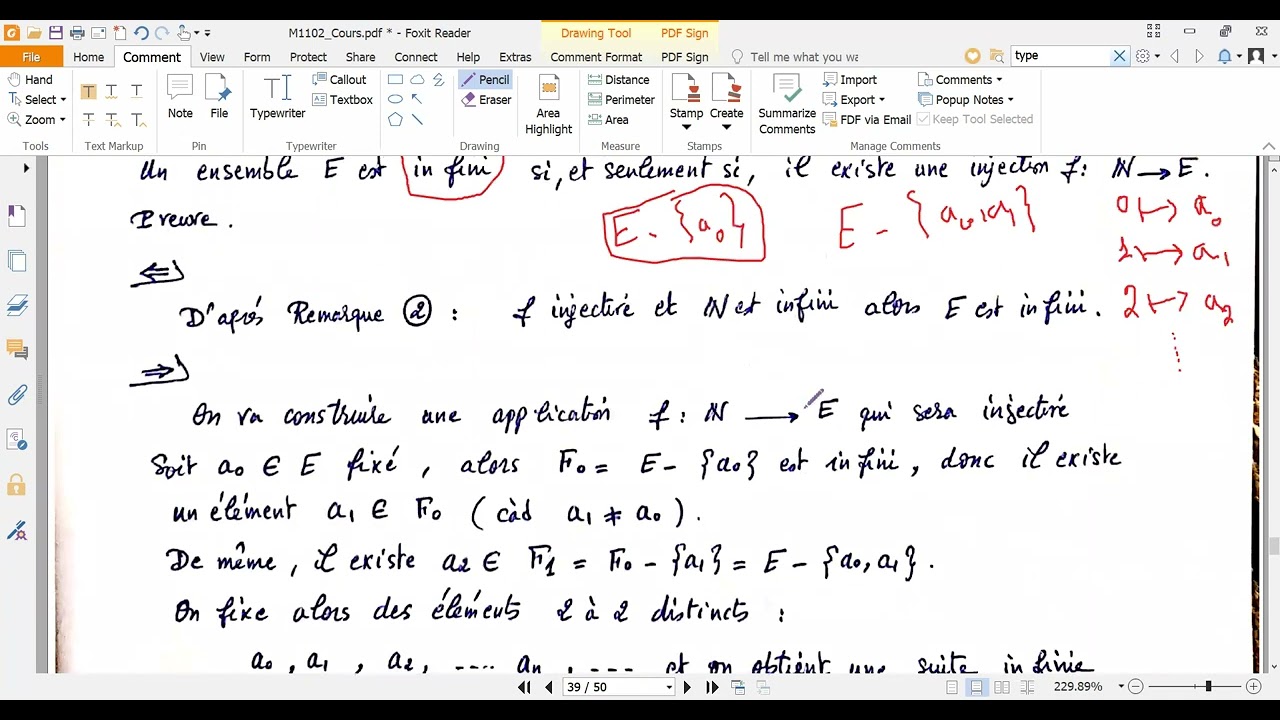 M1102_Cours.pdf * - Foxit Reader
Drawing Tool
PDF Sign
File
Home
Comment
View
Form
Protect
Share
Connect
Help
Extras
Comment Format
PDF Sign
Tell me what you wa
type
Hand
Select
Zoom
Tools
Text Markup
Note
File
Pin
Typewriter
Callout
Textbox
Typewriter
Pencil
Eraser
Drawing
Area Highlight
Distance
Perimeter
Area
Measure
Stamp
Create
Stamps
Summarize Comments
Import
Export
FDF via Email
Comments
Popup Notes
Keep Tool Selected
Manage Comments
Un ensemble E est infini si, et seulement si, il existe une injection f: ℕ → E.
Preuve.
E - {a₀}
E - {a₀, a₁}
0 ↦ a₀
1 ↦ a₁
2 ↦ a₂
⇐)
D'aprés Remarque ② : f injective et ℕ est infini alors E est infini.
⇒)
On va construire une application f: ℕ → E qui sera injective
Soit a₀ ∈ E fixé, alors F₀ = E - {a₀} est infini, donc il existe
un élément a₁ ∈ F₀ (càd a₁ ≠ a₀).
De même, il existe a₂ ∈ F₁ = F₀ - {a₁} = E - {a₀, a₁}.
On fixe alors des éléments 2 à 2 distincts :
a₀, a₁, a₂, .... aₙ, .... et on obtient une suite infinie
39 / 50
229.89%